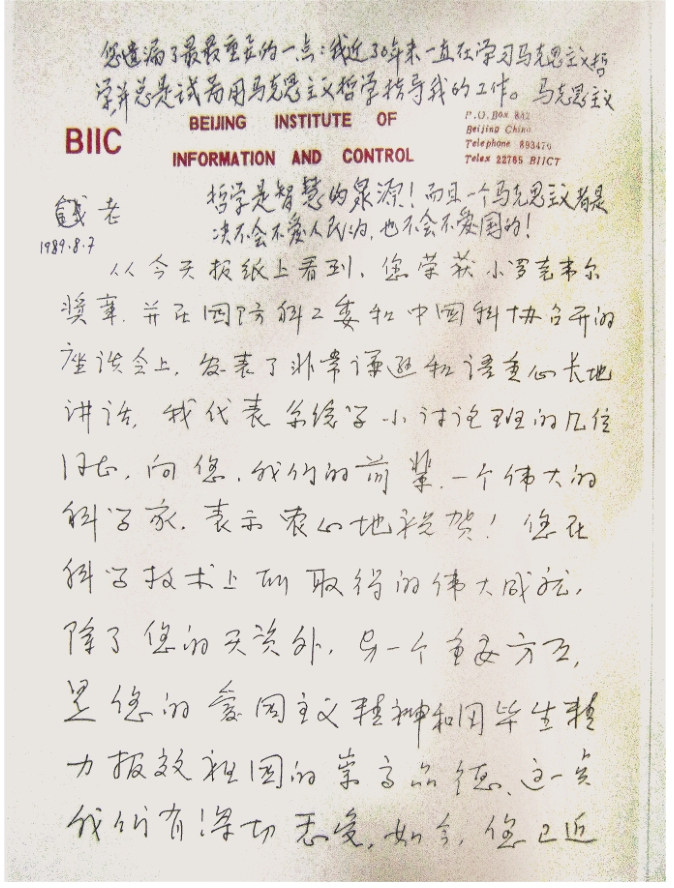 您遗漏了最最重要的一点：我近30年来一直在学习马克思主义哲
学，并总是试图用马克思主义哲学指导我的工作。马克思主义
BIIC
BEIJING INSTITUTE OF
INFORMATION AND CONTROL
P.O.Box 842
Beijing China
Telephone 893476
Telex 22765 BIICT
哲学是智慧的泉源！而且一个马克思主义者是
决不会不爱人民的，也不会不爱国的！
钱老
1989.8.7
从今天报纸上看到，您荣获小罗克韦尔
奖章，并在国防科工委和中国科协召开的
座谈会上，发表了非常谦逊和语重心长地
讲话，我代表系统学小讨论班的几位
同志，向您，我们的前辈，一个伟大的
科学家，表示衷心地祝贺！您在
科学技术上所取得的伟大成就，
除了您的天资外，另一个重要方面，
是您的爱国主义精神和用毕生精
力报效祖国的崇高品德，这一点
我们有深切感受，如今，您已近